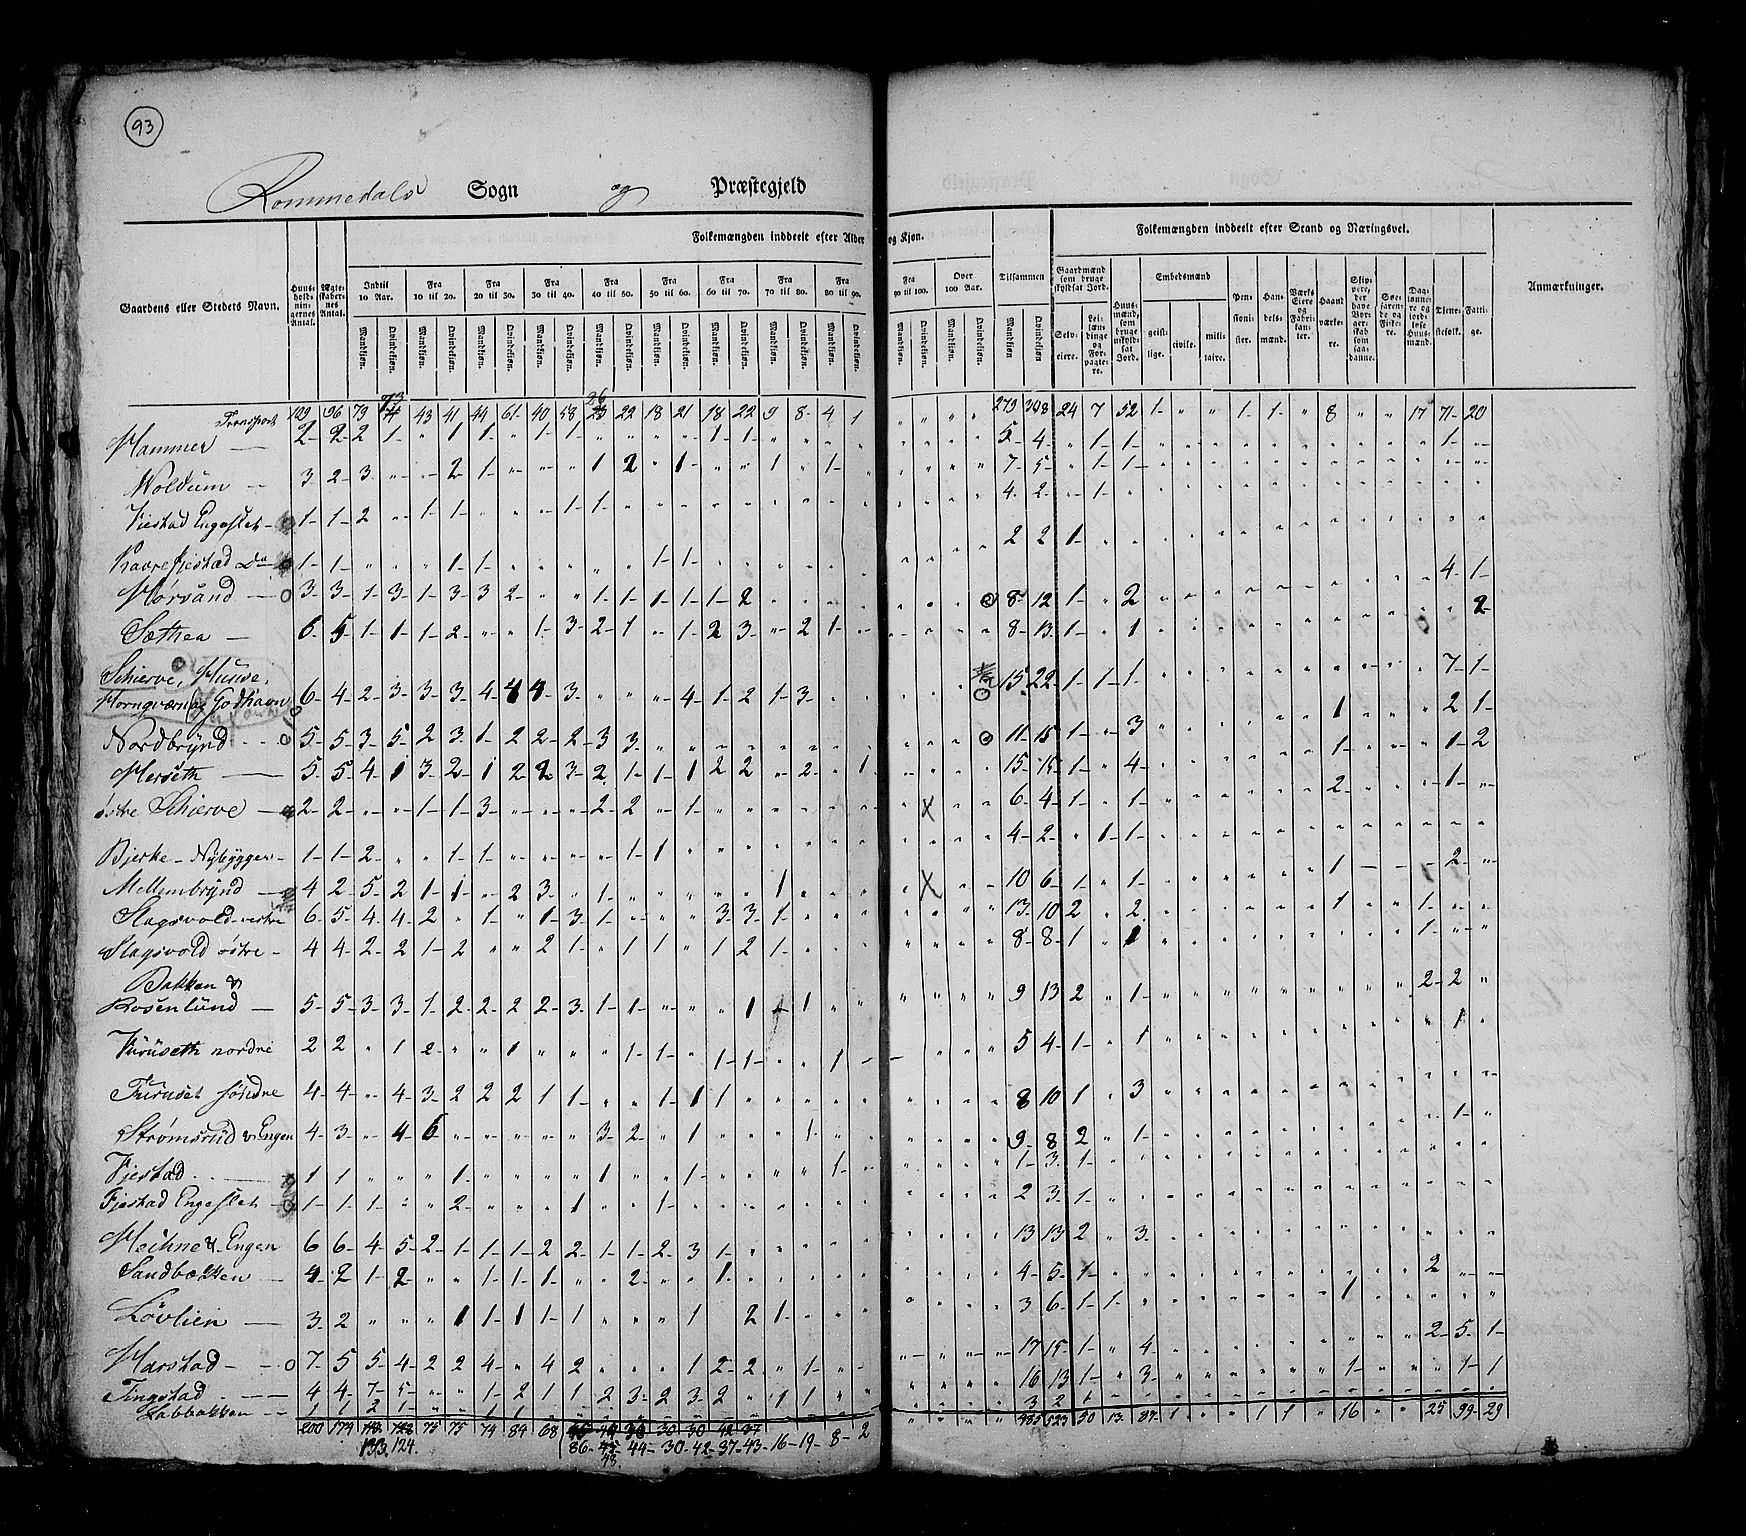 93
Rommedals Sogn og Præstegjeld
Folkemængden inddeelt efter Alder og Kjøn.
Folkemængden inddeelt efter Stand og Næringsvei.
Gaardens eller Stedets Navn.
Huusholdningernes Antal.
Ægteskabernes Antal.
Indtil 10 Aar.
Fra 10 til 20.
Fra 20 til 30.
Fra 30 til 40.
Fra 40 til 50.
Fra 50 til 60.
Fra 60 til 70.
Fra 70 til 80.
Fra 80 til 90.
Fra 90 til 100.
Over 100 Aar.
Tilsammen
Mandkjøn. Qvindekjøn.
Gaardmænd som bruge skyldsat Jord.
Selveiere.
Leilændinge og Forpagtere.
Huusmænd, som bruge uskyldsat Jord.
Embedsmænd
geistlige.
civile.
militaire.
Pensionister.
Handelsmænd.
Værks Eiere og Fabrikanter.
Haandværkere.
Skippere, der have Borgerskab som saadanne.
Søefarende og Fiskere.
Daglønnere og jordløse Huusmænd.
Tjenestefolk.
Fattige.
Anmærkninger.
Transport 109 96 79 73 43 41 44 61 40 58 26 22 18 21 18 22 9 8 4 1 279 308 24 7 52 1 " " 1 1 " 8 " " 17 71 20
Hammer 2 2 2 1 " 1 1 " 1 1 " " " " 1 1 5 4 " 1 1 1
Woldum 3 2 3 " " 2 1 " " " 1 2 " 1 " " 1 " 1 " 7 5 " 1 1
Fjestad Engeslet 1 1 2 " 1 1 " " " 1 1 4 2 " 1
Kavrefjestad Do 1 1 " " " 1 1 " " " " " 1 1 2 2 1
Hørsand 3 3 1 3 1 3 3 2 " " 1 1 1 1 1 2 8 12 1 " 2 4 1
Sæthea 6 5 1 1 1 2 " " 1 3 2 1 " 1 2 3 " 2 1 " 8 13 1 " 1 2
Schierve, Huuse,
Horngværn og Godhavn 6 4 2 3 3 3 4 4 4 3 " " " 4 1 2 1 3 15 22 1 1 1 7 1
Nordbrÿnd 5 5 3 5 2 3 1 2 2 2 3 3 11 15 1 " 3 1 2 1
Merseth 5 5 4 1 3 2 1 2 2 3 2 1 1 1 2 2 " 2 " 1 15 15 1 " 4 1 1 2
østre Schierve 2 2 " " 1 1 3 " " " 2 2 " 1 6 4 1 " 1 2 1
Bjerke Nÿbÿgger 1 1 2 " " 1 1 " " " " 1 1 4 2 " 1 1
Mellembrÿnd 4 2 5 2 1 1 " 2 3 " 1 " " " " " 1 10 6 1 " 1 1 2
Slagsvold vestre 6 5 4 4 2 " 1 " 1 3 1 " " " 3 3 1 13 10 2 " 2 1 1
Slagsvold østre 4 4 2 2 1 2 " " 2 1 " 1 1 " 1 2 1 8 8 1 " 1 1
Bakken &
Rosenlund 5 5 3 3 1 2 2 2 2 3 1 1 " " " 1 1 1 9 13 2 " 1 2 2
Furuseth nordre 2 2 " 1 2 " " 1 " " " 1 1 " 1 1 " " 1 5 4 1 " 1 1
Furuset søndre 4 4 " 4 3 2 2 2 1 1 " " 1 1 1 8 10 1 " 3
Strømsrud & Engen 4 3 " 4 6 " " " " " 3 2 " 1 " " " 1 9 8 2 " 1 1
Fjestad 1 1 " " " 1 " " " " 1 " " 1 " " " " 1 1 3 1
Fjestad Engeslet 1 1 1 " " 2 " " " 1 " " 1 2 3 1
Heihne & Engen 6 6 4 5 2 1 1 1 2 2 1 1 2 3 1 13 13 2 " 3
Sandbækken 4 2 1 2 " " 1 1 1 " " 2 " " 1 4 5 1 2
Løvlien 3 2 " " " 1 1 1 1 1 " " " 1 " 2 1 3 6 1 1 1
Harstad 7 5 5 4 2 2 4 " 4 2 " " " 1 2 2 " 1 17 15 1 " 4 2 5 1
Tingstad 4 4 7 5 " " 1 2 1 1 2 3 2 3 2 " 1 1 16 13 1 " 3 1 1 1
Labbakken 1 1 2 1 " " 1 1 3 2
200 179 75 75 79 84 68 485 523 50 13 89 1 1 1 16 25 99 29
133 124 86 44 30 42 37 43 16 19 8 2
48